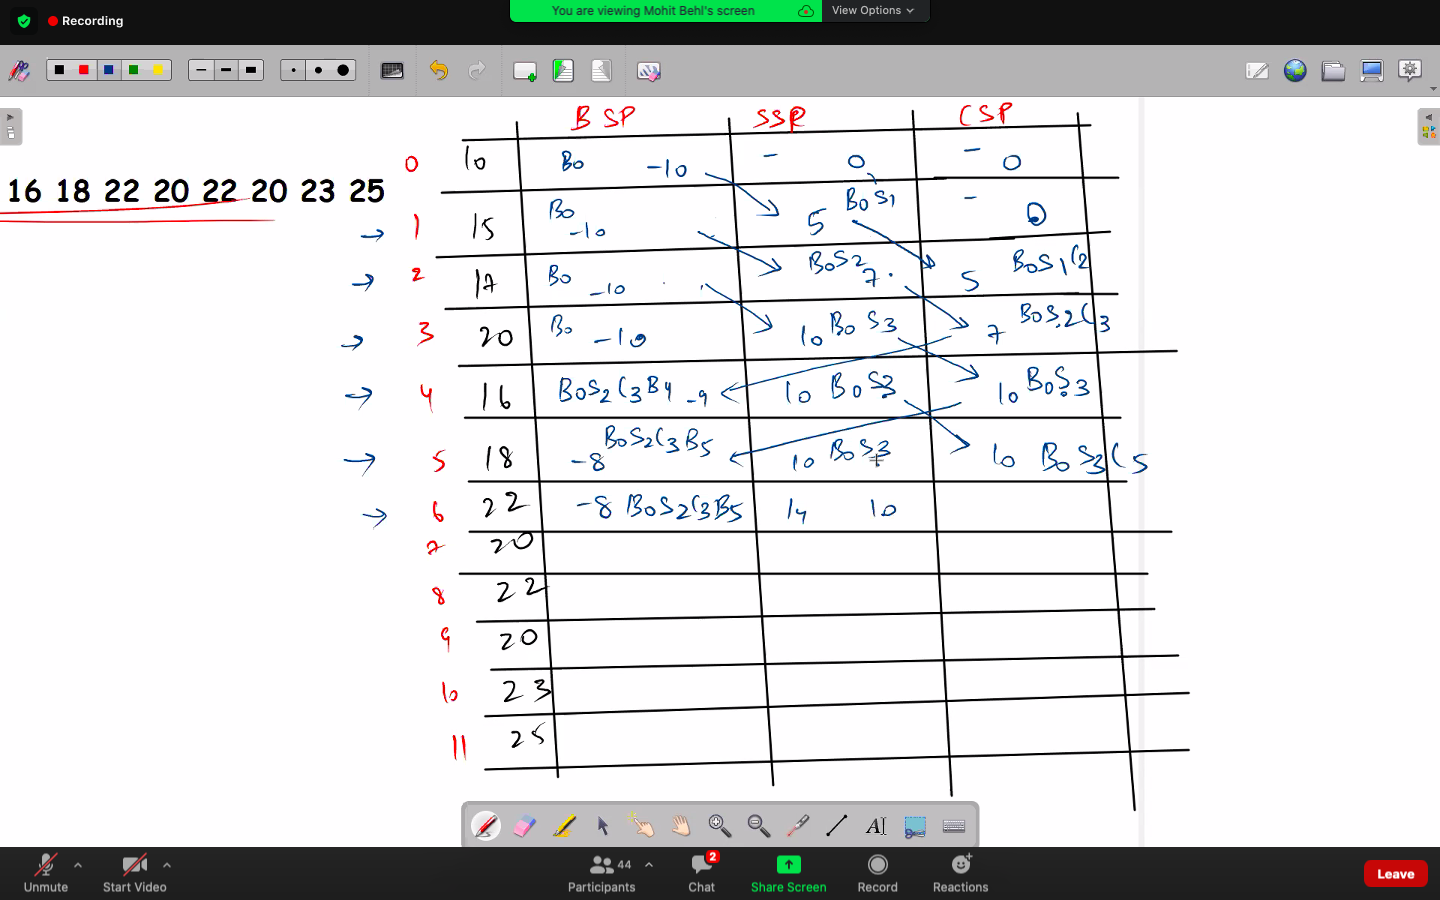 Recording
You are viewing Mohit Behl's screen
View Options
BSP SSP CSP
0 10 B0 -10 - 0 - 0
16 18 22 20 22 20 23 25
1 15 B0 -10 5 B0S1 - 0
2 17 B0 -10 B0S2 7 5 B0S1C2
3 20 B0 -10 10 B0S3 7 B0S2C3
4 16 B0S2C3B4 -9 10 B0S3 10 B0S3
5 18 -8 B0S2C3B5 10 B0S3 10 B0S3C5
6 22 -8 B0S2C3B5 14 10
7 20
8 22
9 20
10 23
11 25
A
Unmute
Start Video
44
Participants
2
Chat
Share Screen
Record
Reactions
Leave